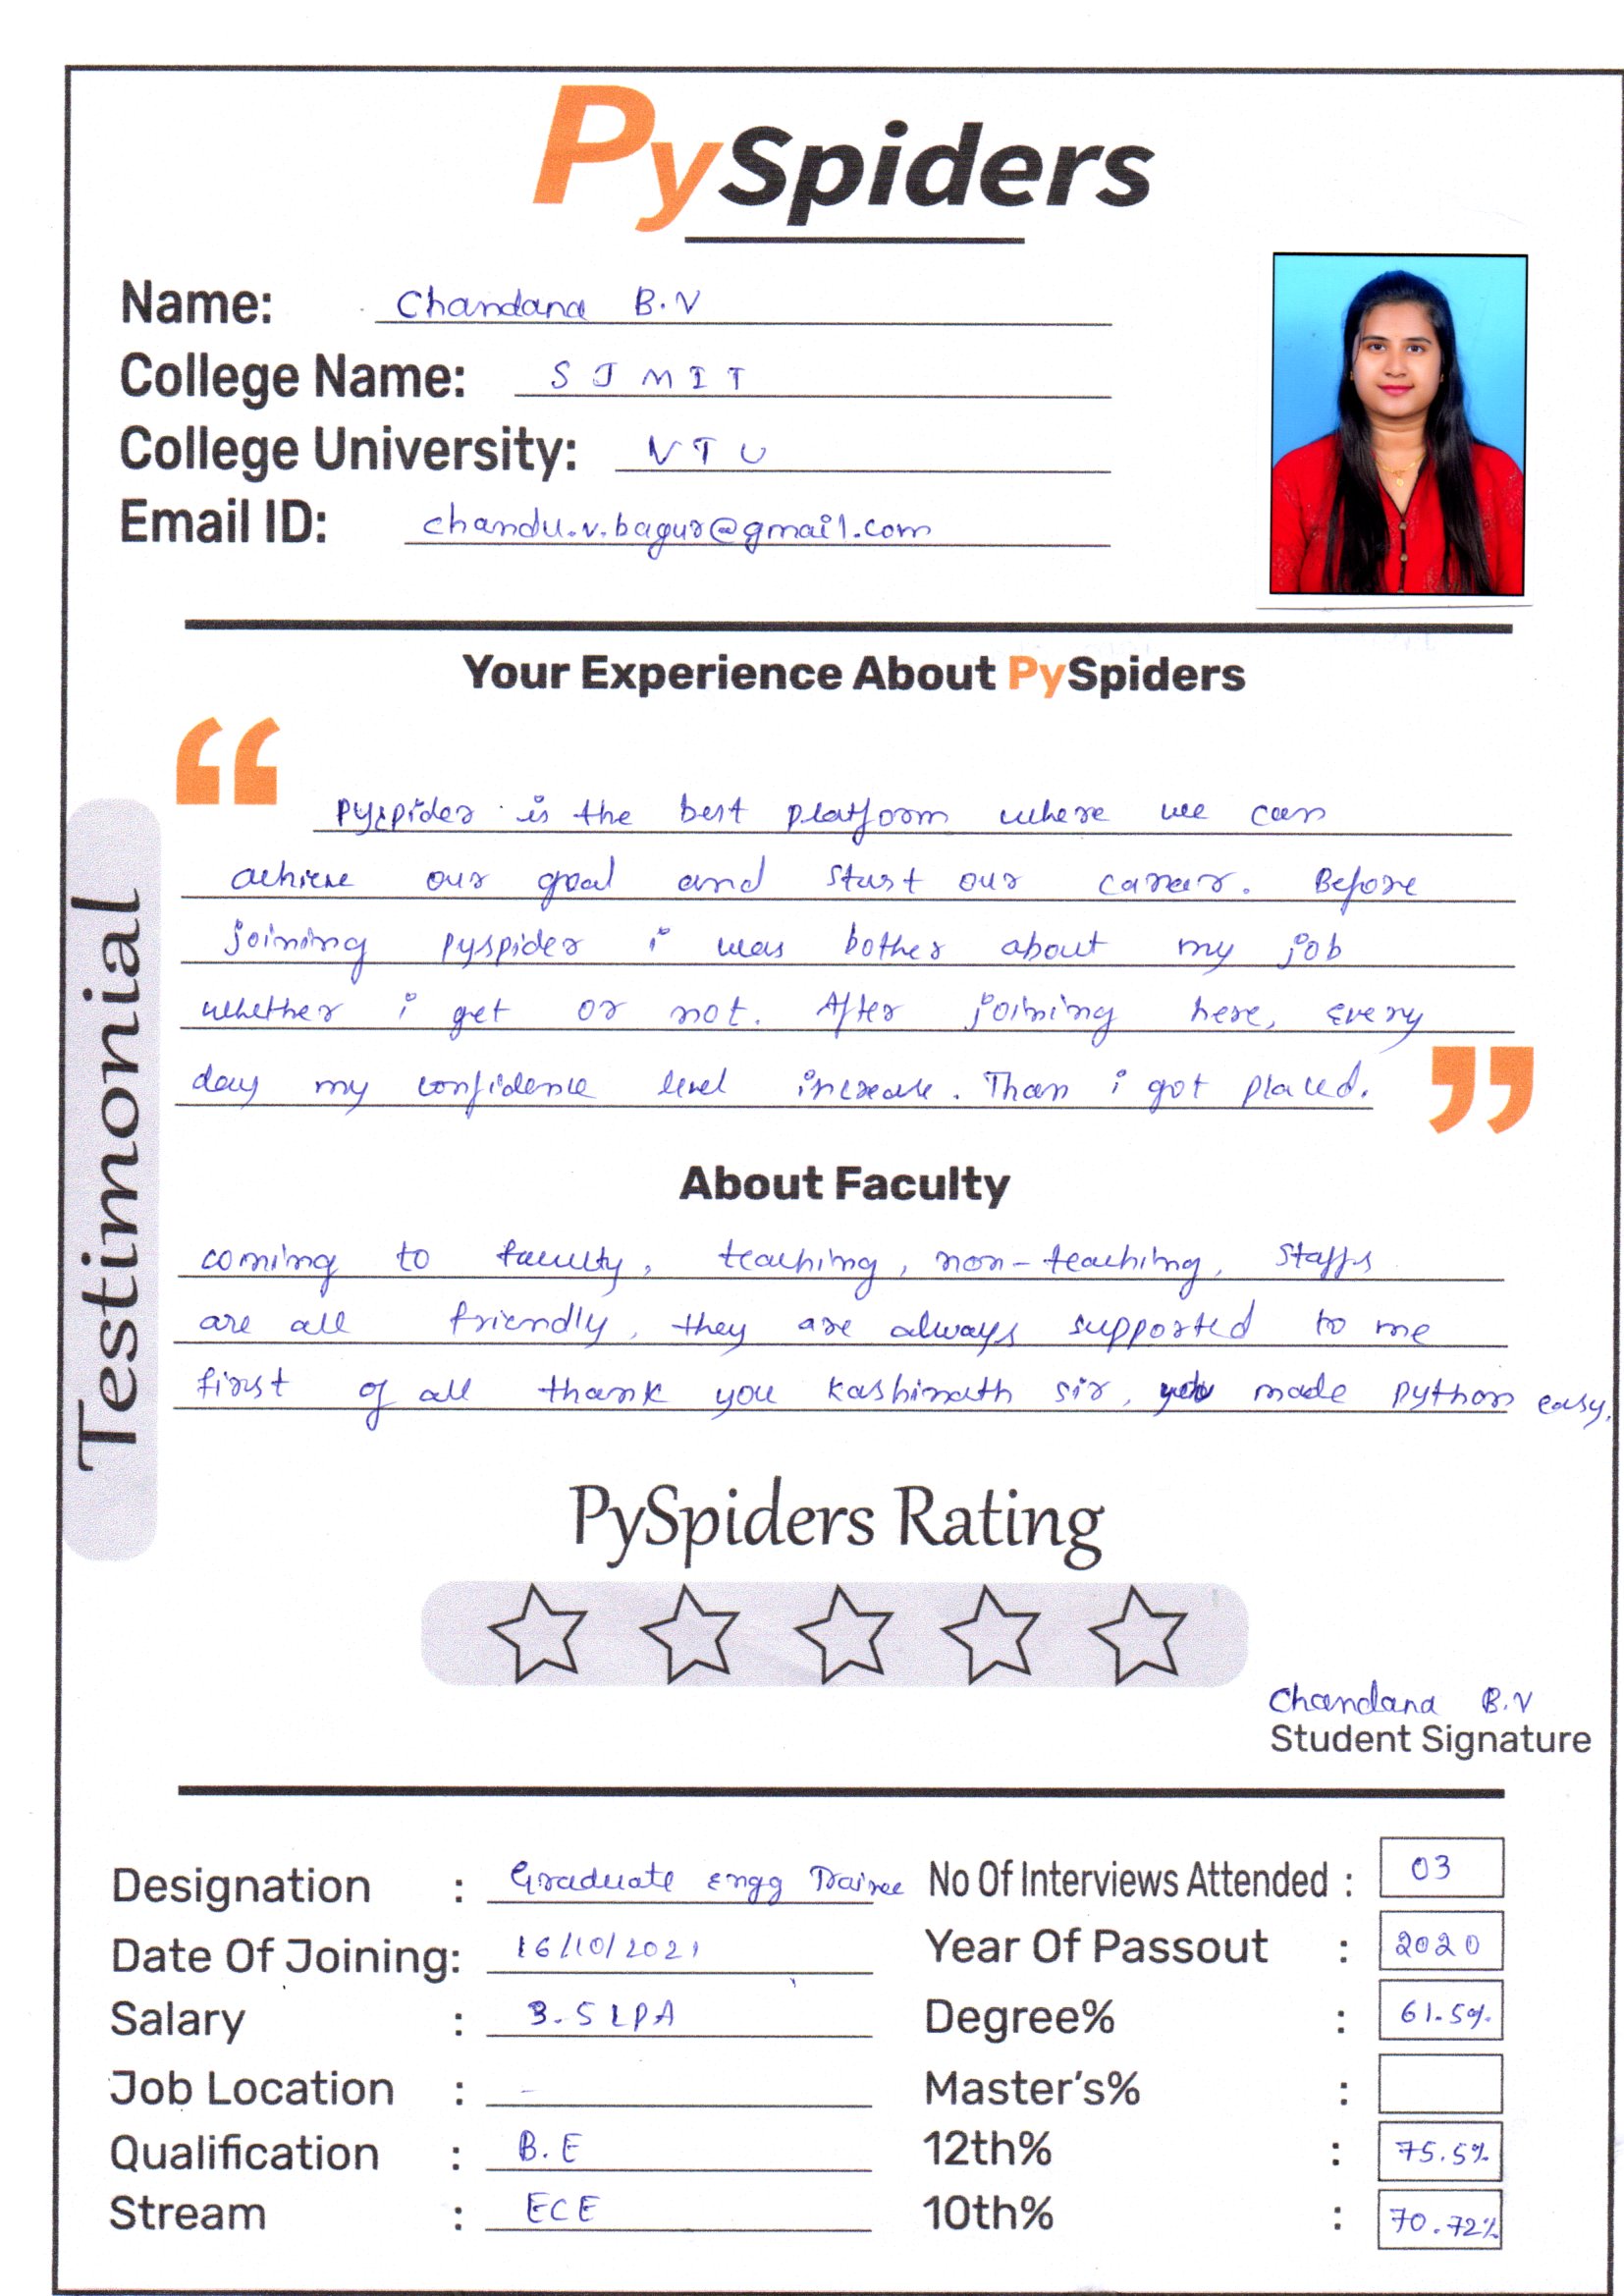 PySpiders
Name: Chandana B.V
College Name: S J M I T
College University: V T U
Email ID: chandu.v.bagur@gmail.com
Your Experience About PySpiders
“
Pyspider is the best platform where we can
achieve our goal and start our career. Before
joining pyspider i was bother about my job
whether i get or not. After joining here, every
day my confidence level increase. Than i got placed.
”
Testimonial
About Faculty
coming to faculty, teaching, non-teaching, staffs
are all friendly, they are always supported to me
first of all thank you Kashinath sir, made python easy.
PySpiders Rating
Chandana B.V
Student Signature
Designation : Graduate Engg Trainee No Of Interviews Attended : 03
Date Of Joining: 16/10/2021 Year Of Passout : 2020
Salary : 3.5 LPA Degree% : 61.5%
Job Location : - Master's% :
Qualification : B.E 12th% : 75.5%
Stream : ECE 10th% : 70.72%